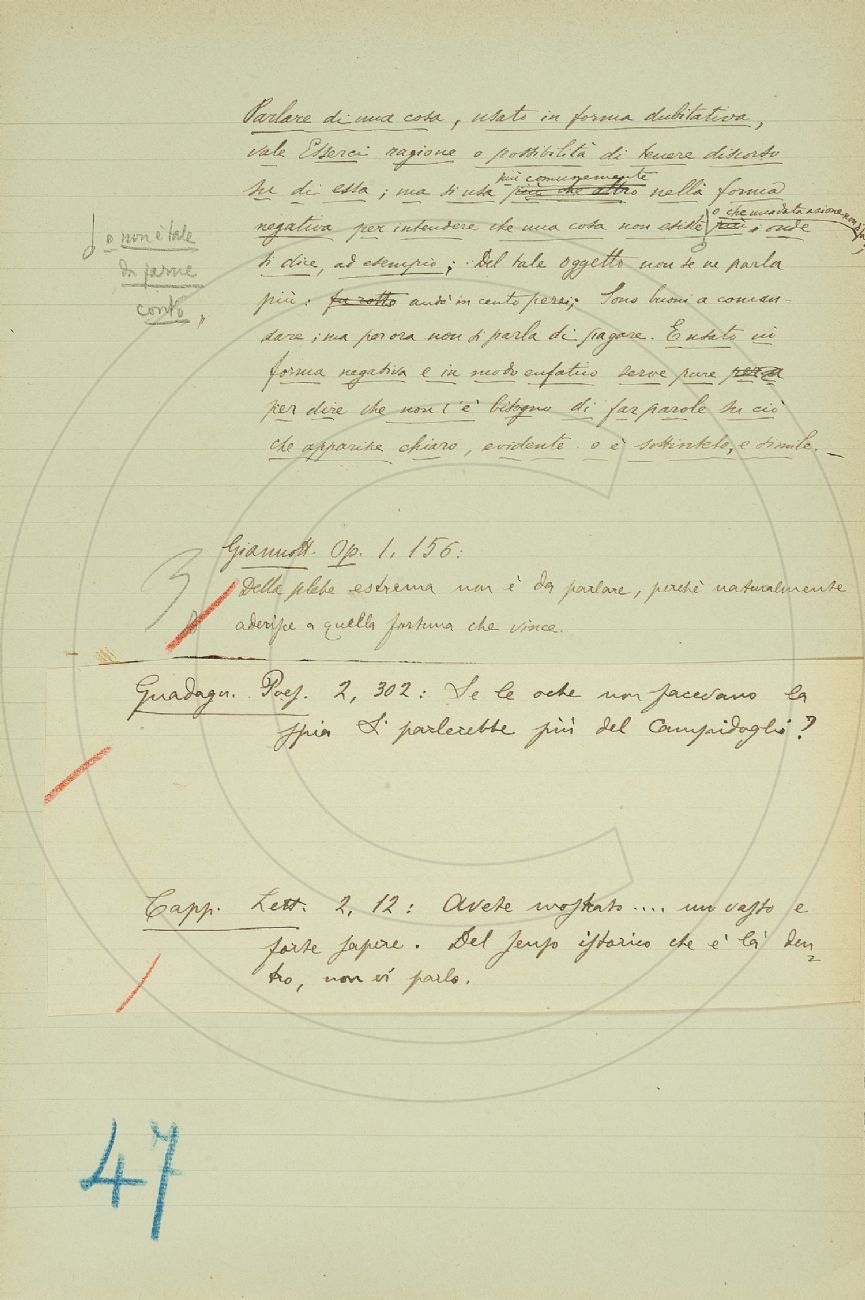 Parlare di una cosa, usato in forma dubitativa,
vale Esserci ragione o possibilità di tenere discorso
più comunemente
su di essa; ma si usa più che altro nella forma
o che una data azione non si fa;
negativa per intendere che una cosa non esiste più, onde
o non è tale
da farne
conto,
si dice, ad esempio; Del tale oggetto non se ne parla
più: fu rotto andò in cento pezzi; Sono buoni a coman-
dare; ma per ora non si parla di pagare. E usato in
forma negativa e in modo enfatico serve pure
per dire che non c'è bisogno di far parole su ciò
che apparisce chiaro, evidente o è sottinteso, e simile. —
Giannott. Op. 1, 156:
3
Della plebe estrema non è da parlare, perchè naturalmente
aderisce a quella fortuna che vince.
Guadagn. Poes. 2, 302: Se le oche non facevano la
spia Si parlerebbe più del Campidoglio?
Capp. Lett. 2, 12: Avete mostrato .... un vasto e
forte sapere. Del senso istorico che è là den=
tro, non vi parlo.
47